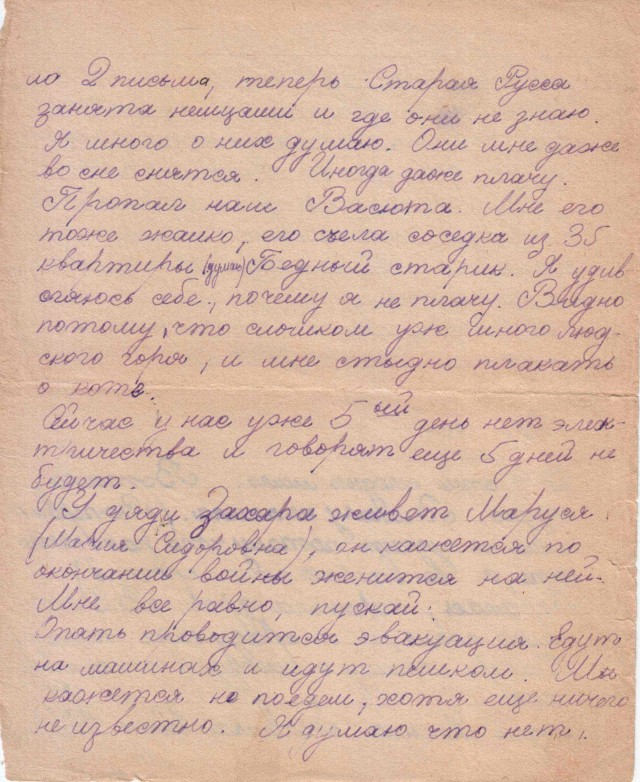 ла 2 письма, теперь Старая Русса
занята немцами и где они не знаю.
Я много о них думаю. Они мне даже
во сне снятся. Иногда даже плачу.
Пропал наш Васюта. Мне его
тоже жалко, его съела соседка из 35
квартиры (думаю) Бедный старик. Я удив
ляюсь себе, почему я не плачу. Видно
потому, что слишком уж много люд-
ского горя, и мне стыдно плакать
о коте.
Сейчас у нас уже 5ый день нет элек-
тричества и говорят еще 5 дней не
будет.
У дяди Захара живет Маруся
(Мария Сидоровна), он кажется по
окончании войны женится на ней.
Мне все равно, пускай.
Опять проводится эвакуация. Едут
на машинах и идут пешком. Мы
кажется не поедем, хотя еще ничего
не известно. Я думаю что нет.